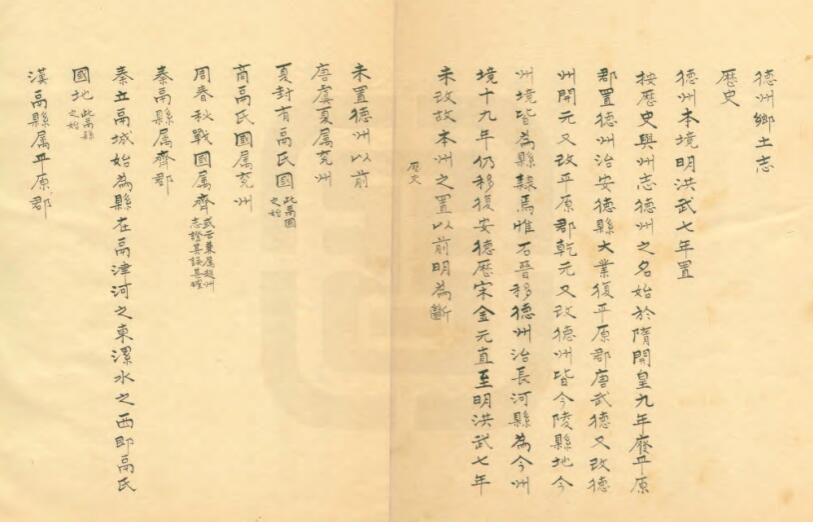 德州鄉土志
歷史
德州本境明洪武七年置
按歷史與州志德州之名始於隋開皇九年廢平原
郡置德州治安德縣大業復平原郡唐武德又改德
州開元又改平原郡乾元又改德州皆今陵縣地今
州境皆為縣隸焉惟石晉移德州治長河縣為今州
境十九年仍移復安德歷宋金元直至明洪武七年
未改故本州之置以前明為斷
歷史
未置德州以前
唐虞夏属兗州
夏封有鬲氏國此鬲國之始
商鬲氏國属兗州
周春秋戰國属齊或云兼属趙州志證其誤甚確
秦鬲縣属齊郡
秦立鬲城始為縣在鬲津河之東漯水之西即鬲氏
國地此鬲縣之始
漢鬲縣属平原郡